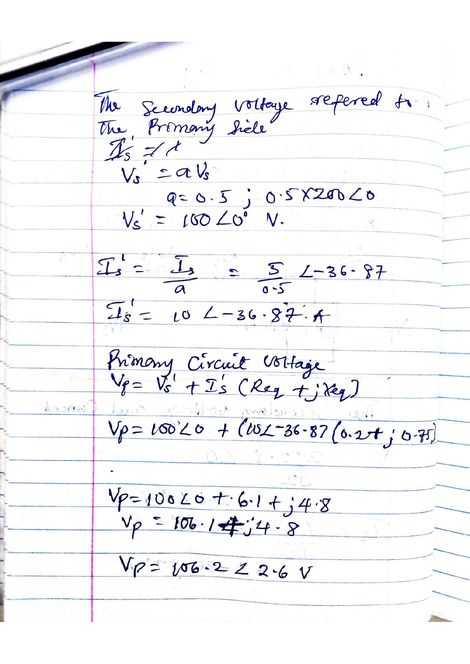 The Secondary voltage refered to
the Primary side
Vs' = aVs
a = 0.5 ; 0.5 X 200∠0
Vs' = 100∠0° V.
Is' = Is/a = 5/0.5 ∠-36-87
Is' = 10 ∠-36.87. A
Primary Circuit voltage
Vp = Vs' + I's (Req + jXeq)
Vp = 100∠0 + (10∠-36-87 (0.2+j 0.75)
Vp = 100∠0 + 6.1 + j4.8
Vp = 106.1 + j4.8
Vp = 106.2 ∠ 2.6 V